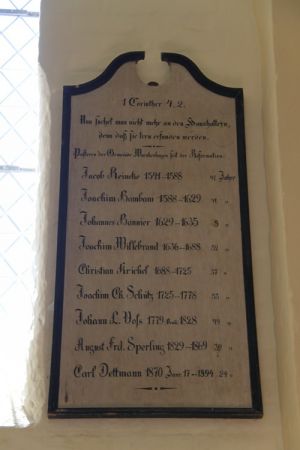 1 Corinther 4, 2.
Nun suchet man nicht mehr an den Haushaltern,
denn daß sie treu erfunden werden.
Pastoren der Gemeinde seit der Reformation:
Jacob Reincke 1541-1588 47 Jahre
Joachim Bambam 1588-1629 41 "
Johannes Bannier 1629-1635 "
Joachim Willebrand 1636-1688 52 "
Christian Krickel 1688-1725 37 "
Joachim Ch. Schütz 1725-1778 53 "
Johann L. Voß 1779 1828 49 "
August Frd. Sperling 1829-1869 "
Carl Dettmann 1870 Janr. 17-1894 24 "